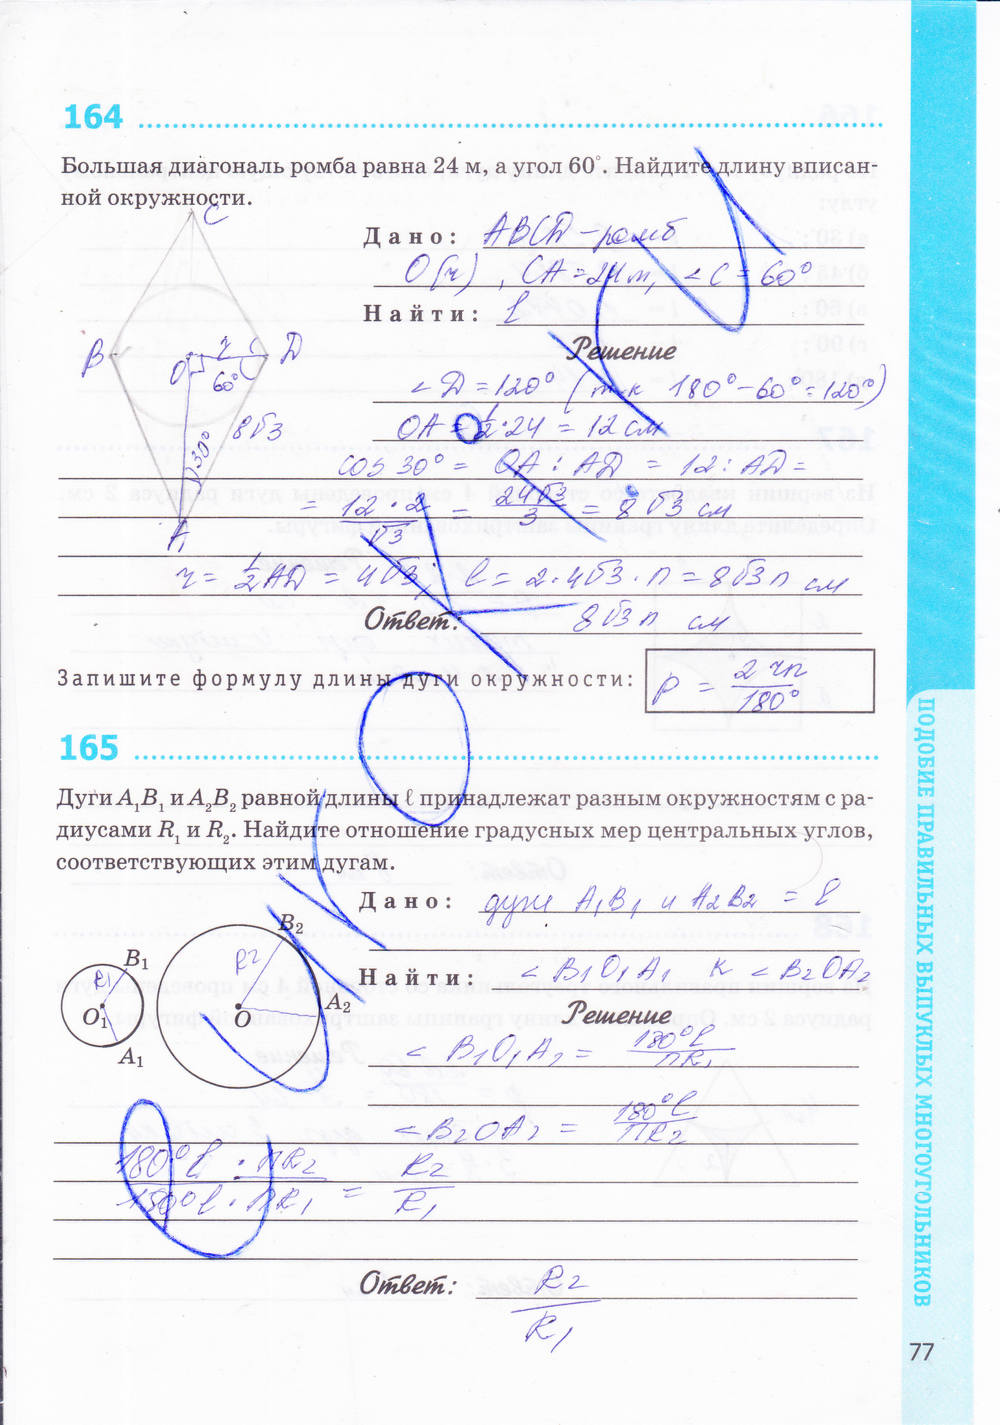 164
Большая диагональ ромба равна 24 м, а угол 60°. Найдите длину вписан-
ной окружности.
C
Дано: ABCD - ромб
O(r), CA = 24 м, < C = 60°
Найти: l
B O r D
60°
8√3
30°
A
Решение
< D = 120° (т.к 180° - 60° = 120°)
OA = 1/2 · 24 = 12 см
cos 30° = OA : AD = 12 : AD =
= 12 · 2/√3 = 24√3/3 = 8√3 см
r = 1/2 AD = 4√3, l = 2 · 4√3 · π = 8√3 π см
Ответ: 8√3 π см
Запишите формулу длины дуги окружности: p = 2 rπ/180°
165
Дуги A₁B₁ и A₂B₂ равной длины ℓ принадлежат разным окружностям с ра-
диусами R₁ и R₂. Найдите отношение градусных мер центральных углов,
соответствующих этим дугам.
Дано: дуги A₁B₁ и A₂B₂ = l
Найти: < B₁O₁A₁ к < B₂OA₂
B₁ R₁ O₁ A₁
B₂ R₂ O A₂
Решение
< B₁O₁A₁ = 180° l/πR₁
< B₂OA₂ = 180° l/πR₂
180° l · πR₂/180° l · πR₁ = R₂/R₁
Ответ: R₂/R₁
ПОДОБИЕ ПРАВИЛЬНЫХ ВЫПУКЛЫХ МНОГОУГОЛЬНИКОВ
77